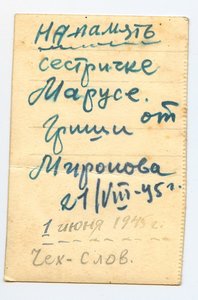 на память
сестричке
Марусе.
от
Гриши
Миронова
21/VIII-45г.
1 июня 1945 г.
Чех-Слов.